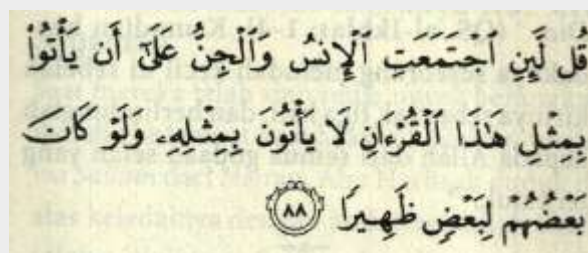 قُل لَّئِنِ ٱجۡتَمَعَتِ ٱلۡإِنسُ وَٱلۡجِنُّ عَلَىٰٓ أَن يَأۡتُواْ
بِمِثۡلِ هَٰذَا ٱلۡقُرۡءَانِ لَا يَأۡتُونَ بِمِثۡلِهِۦ وَلَوۡ كَانَ
بَعۡضُهُمۡ لِبَعۡضٖ ظَهِيرٗا ٨٨